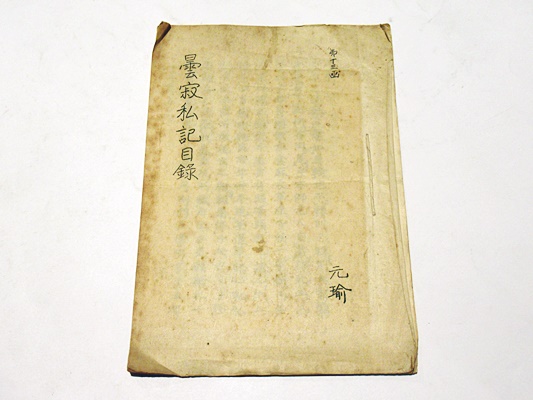 第十三函
曇寂私記目録
元瑜